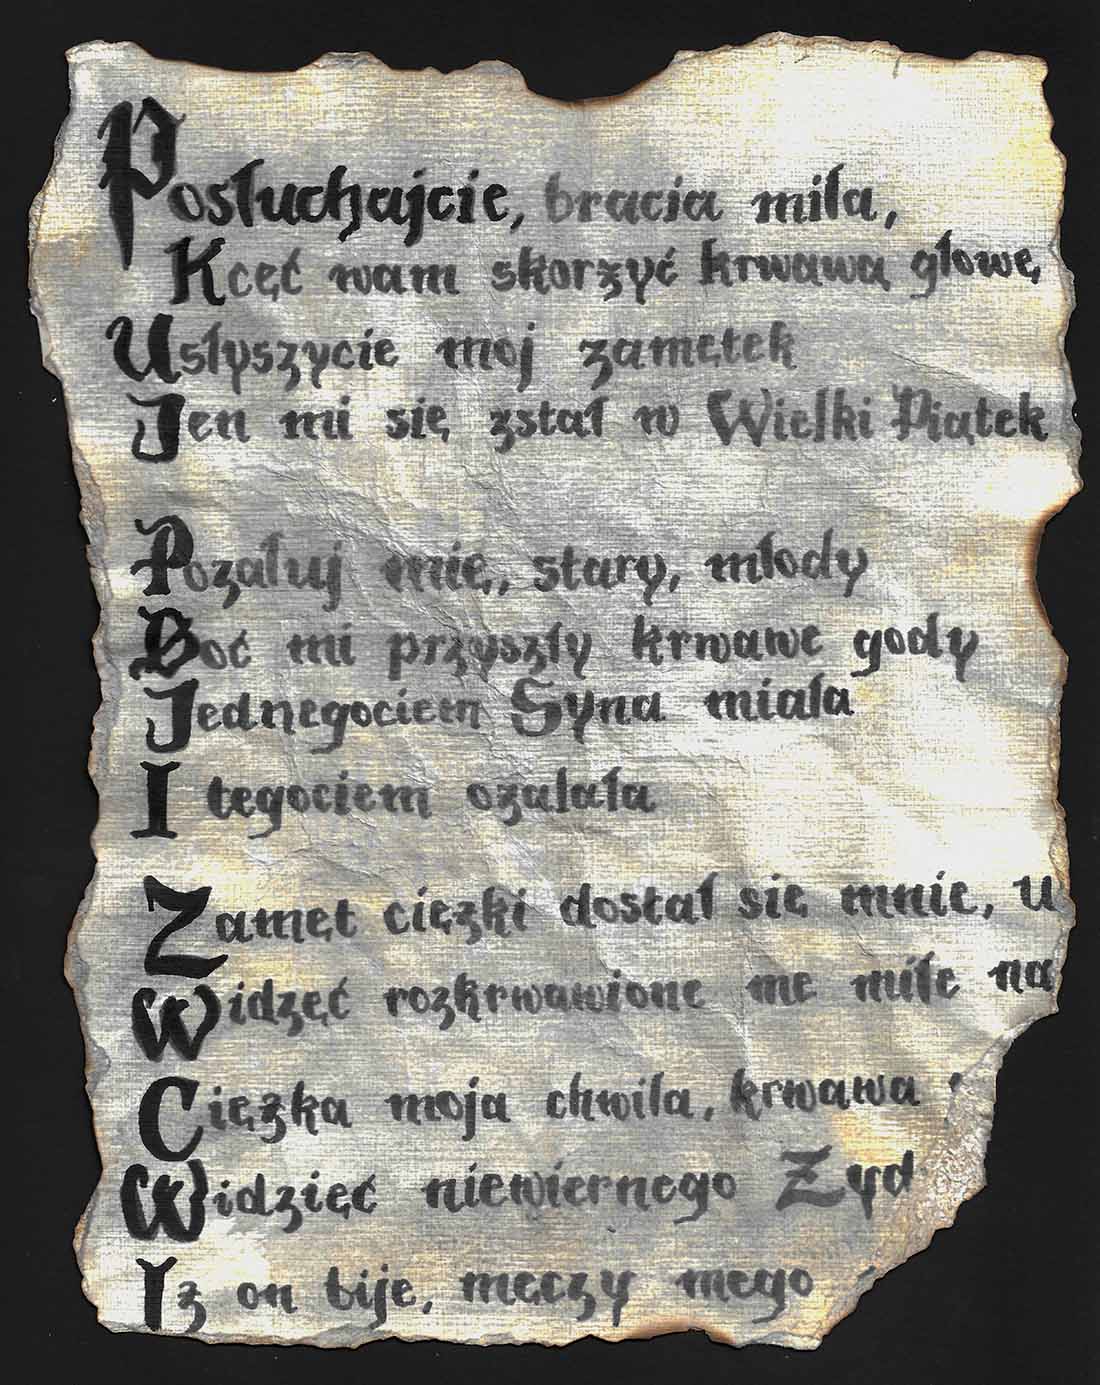 Posłuchajcie, bracia miła,
Kcęć wam skorzyć krwawą głowę
Usłyszycie moj zamętek
Jen mi się zstał w Wielki Piątek
Pozałuj mię, stary, młody
Boć mi przyszły krwawe gody
Jednegociem Syna miała
I tegociem ozalała
Zamęt cięzki dostał się mnie, u
Widzęć rozkrwawione me miłe na
Cięzka moja chwila, krwawa
Widzięć niewiernego Żyd
Iz on bije, męczy mego